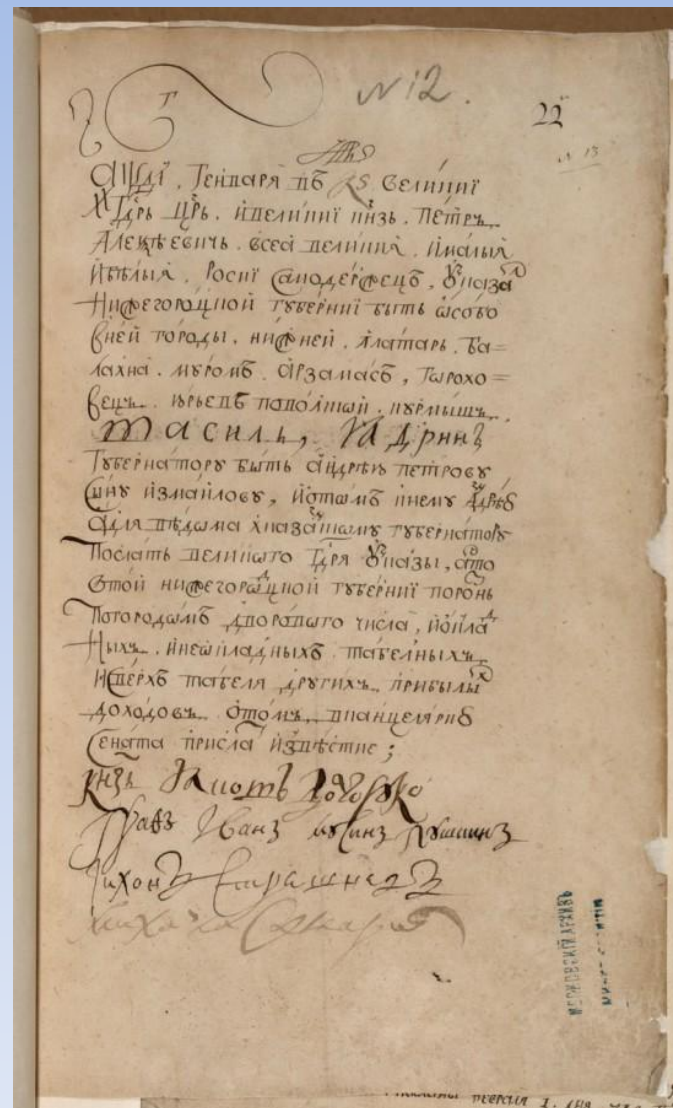 N 12.
22
N 13
҂аѱді, Генваря въ кѕ великиї
Гдрь црь. и великиї кнзь. Петръ
Алеѯѣевичь. всеа великия. и малыя
и бѣлыя. Росиї самодержецъ, указал
Нижегороцкой губерниї быть ѡсобо
в ней городы. нижней. Алатарь. ба=
лахна. муромъ. арзамасъ, горохо=
вецъ. юрьевъ поволской. курмышь.
василь, ядринъ
Губернатору быть андрѣю петрову
сыну измаилову, и о томъ к нему
а для вѣдома х казанскому губернатору
послать великого гдря указы, а что
с той нижегороцкой губерниї порознь
по городамъ дворового числа, и оклад
ных. и неокладных табелных
и сверхъ табеля других. прибылых
доходовъ. о томъ. в канцелярию
Сената присла извѣстие;
Князь Яковъ Долгоруко
Графъ Иванъ Мусинъ Пушкинъ
Тихонъ Стрешневъ
МОСКОВСКІЙ АРХИВЪ